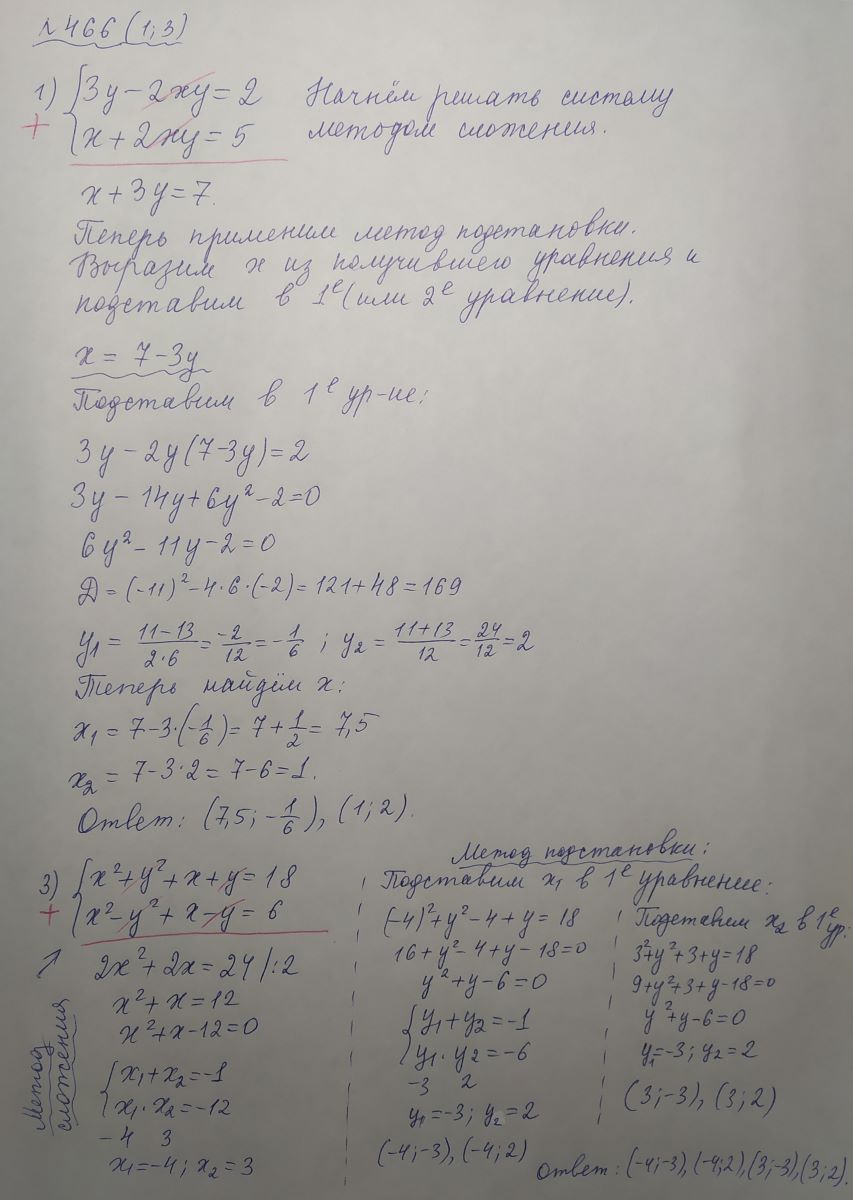 №466 (1;3)
1) {3y − 2xy = 2
+ {x + 2xy = 5
Начнём решать систему
методом сложения.
x + 3y = 7.
Теперь применим метод подстановки.
Выразим x из получившего уравнения и
подставим в 1е (или 2е уравнение).
x = 7 − 3y
Подставим в 1е ур-ие:
3y − 2y(7−3y) = 2
3y − 14y + 6y² − 2 = 0
6y² − 11y − 2 = 0
Д = (−11)² − 4·6·(−2) = 121 + 48 = 169
y₁ = (11−13)/(2·6) = −2/12 = −1/6 ; y₂ = (11+13)/12 = 24/12 = 2
Теперь найдём x:
x₁ = 7−3·(−1/6) = 7 + 1/2 = 7,5
x₂ = 7−3·2 = 7−6 = 1.
Ответ: (7,5; −1/6), (1; 2).
3) {x² + y² + x + y = 18
+ {x² − y² + x − y = 6
2x² + 2x = 24 /:2
x² + x = 12
x² + x − 12 = 0
{x₁ + x₂ = −1
{x₁ · x₂ = −12
−4 3
x₁ = −4; x₂ = 3
Метод
сложения
Метод подстановки:
Подставим x₁ в 1е уравнение:
(−4)² + y² − 4 + y = 18
16 + y² − 4 + y − 18 = 0
y² + y − 6 = 0
{y₁ + y₂ = −1
{y₁ · y₂ = −6
−3 2
y₁ = −3; y₂ = 2
(−4;−3), (−4; 2)
Подставим x₂ в 1е ур:
3² + y² + 3 + y = 18
9 + y² + 3 + y − 18 = 0
y² + y − 6 = 0
y₁ = −3; y₂ = 2
(3;−3), (3; 2)
Ответ: (−4;−3), (−4;2), (3;−3), (3; 2).